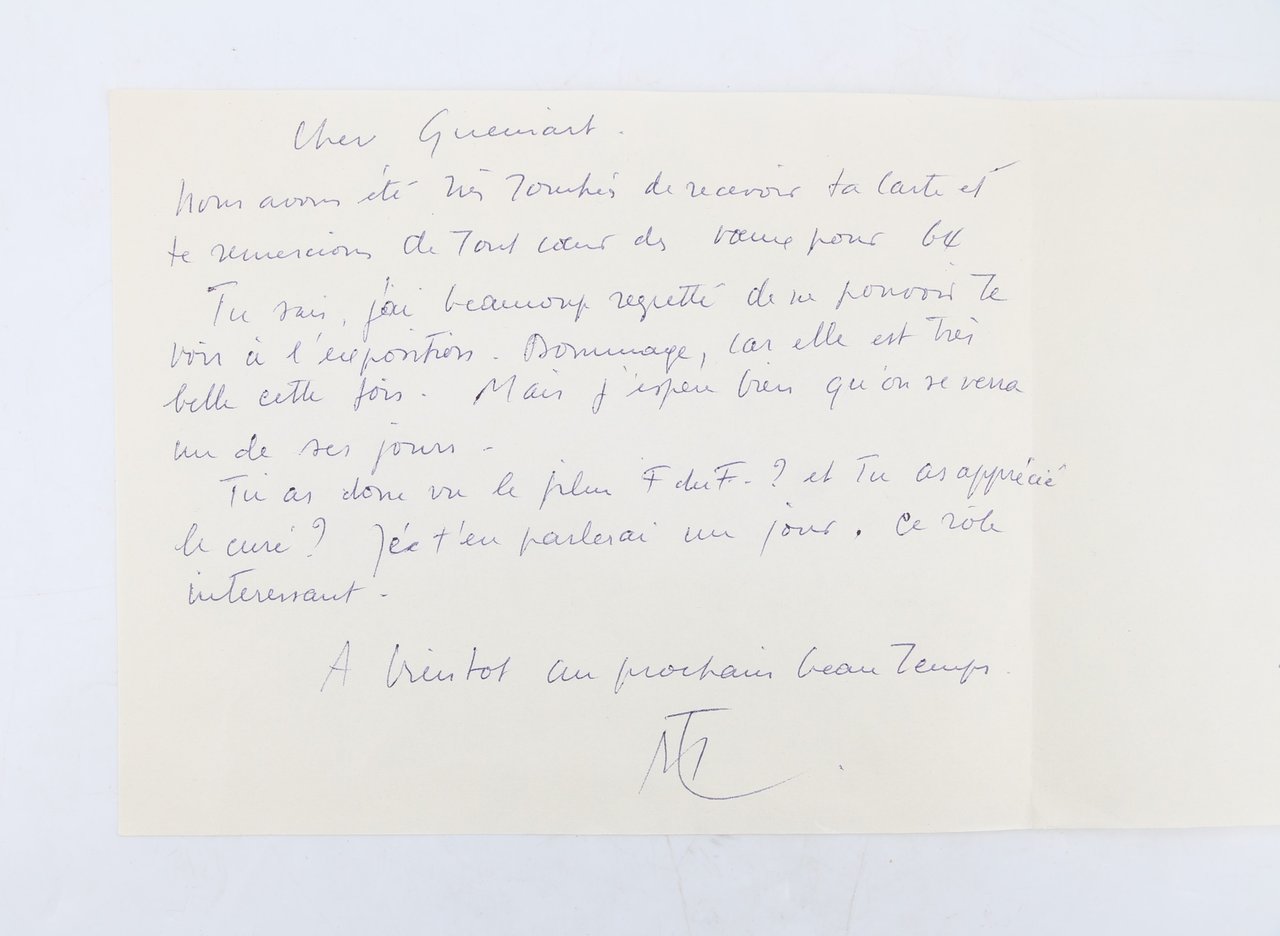 Cher Guemart.
Nous avons été très touchés de recevoir ta carte et
te remercions de tout cœur des vœux pour 64
Tu sais, j'ai beaucoup regretté de ne pouvoir te
voir à l'exposition. Dommage, car elle est très
belle cette fois. Mais j'espère bien qu'on se verra
un de ses jours -
Tu as donc vu le film F du F. ? et tu as apprécié
le curé ? t'en parlerai un jour. Ce rôle
interessant -
A bientot au prochain beau temps.